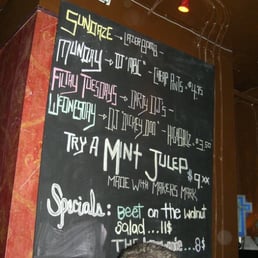 SUNDAZE →
MUNDAY → DJ "ABC" - CHEAP PINTS $4.75
FILTHY TUESDAYS → DJ'S -
WEDNESDAY → DJ - $3.50
TRY A MINT JULEP
$9.XX
MADE WITH MAKERS MARK
Specials: Beet on the walnut
salad...11$
THE ...8$